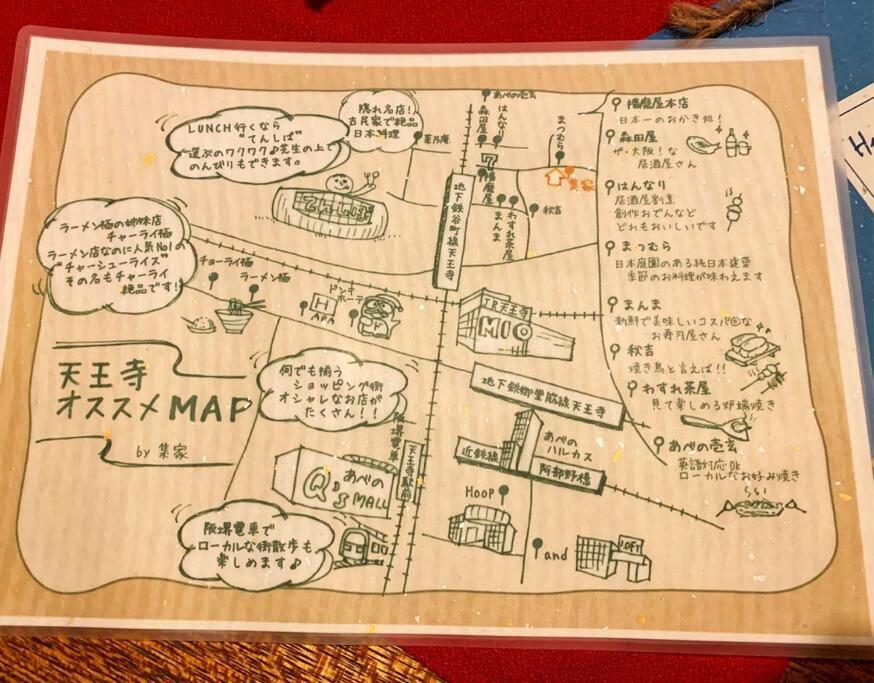 LUNCH行くなら
"てんしば"
選ぶのワクワク♪芝生の上で
のんびりもできます。
隠れ名店!
古民家で絶品
日本料理
菜乃庵
てんしば
ラーメン極の姉妹店
チャーライ極
ラーメン店なのに人気No.1の
"チャーシューライス"
その名もチャーライ
絶品です!
チョーライ極
ラーメン極
H
APA
ドンキ
ホーテ
天王寺
オススメMAP
by 集家
何でも揃う
ショッピング街
オシャレなお店が
たくさん!!
阪堺電車
天王寺駅前
あべの
Q's MALL
阪堺電車で
ローカルな街散歩も
楽しめます♪
あべの壱玄
森田屋
はんなり
7
播磨屋
まつむら
集家
まんま
わすれ茶屋
秋吉
地下鉄谷町線天王寺
JR天王寺
MIO
地下鉄御堂筋線天王寺
あべの
ハルカス
近鉄線
阿部野橋
Hoop
and
LOFT
播磨屋本店
日本一のおかき処!
森田屋
ザ・大阪!な
居酒屋さん
はんなり
居酒屋割烹
創作おでんなど
どれもおいしいです
まつむら
日本庭園のある純日本建築
季節のお料理が味わえます
まんま
新鮮で美味しいコスパ◎な
お寿司屋さん
秋吉
焼き鳥と言えば!!
わすれ茶屋
見て楽しめる炉端焼き
あべの壱玄
英語対応OK
ローカルなお好み焼き
H